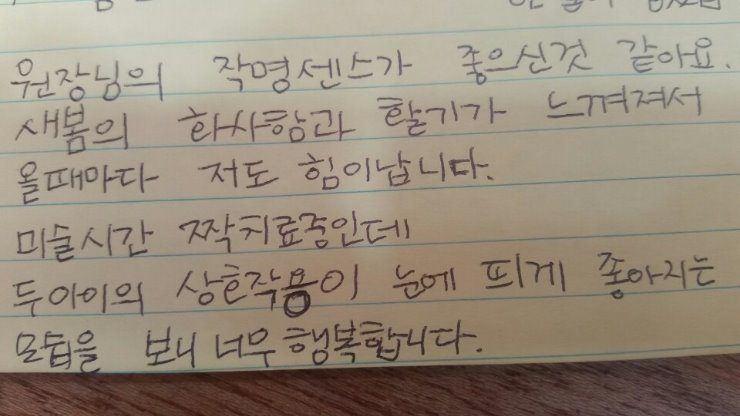 원장님의 작명센스가 좋으신것 같아요.
새봄의 화사함과 활기가 느껴져서
올때마다 저도 힘이납니다.
미술시간 짝치료중인데
두아이의 상호작용이 눈에 띄게 좋아지는
모습을 보니 너무 행복합니다.